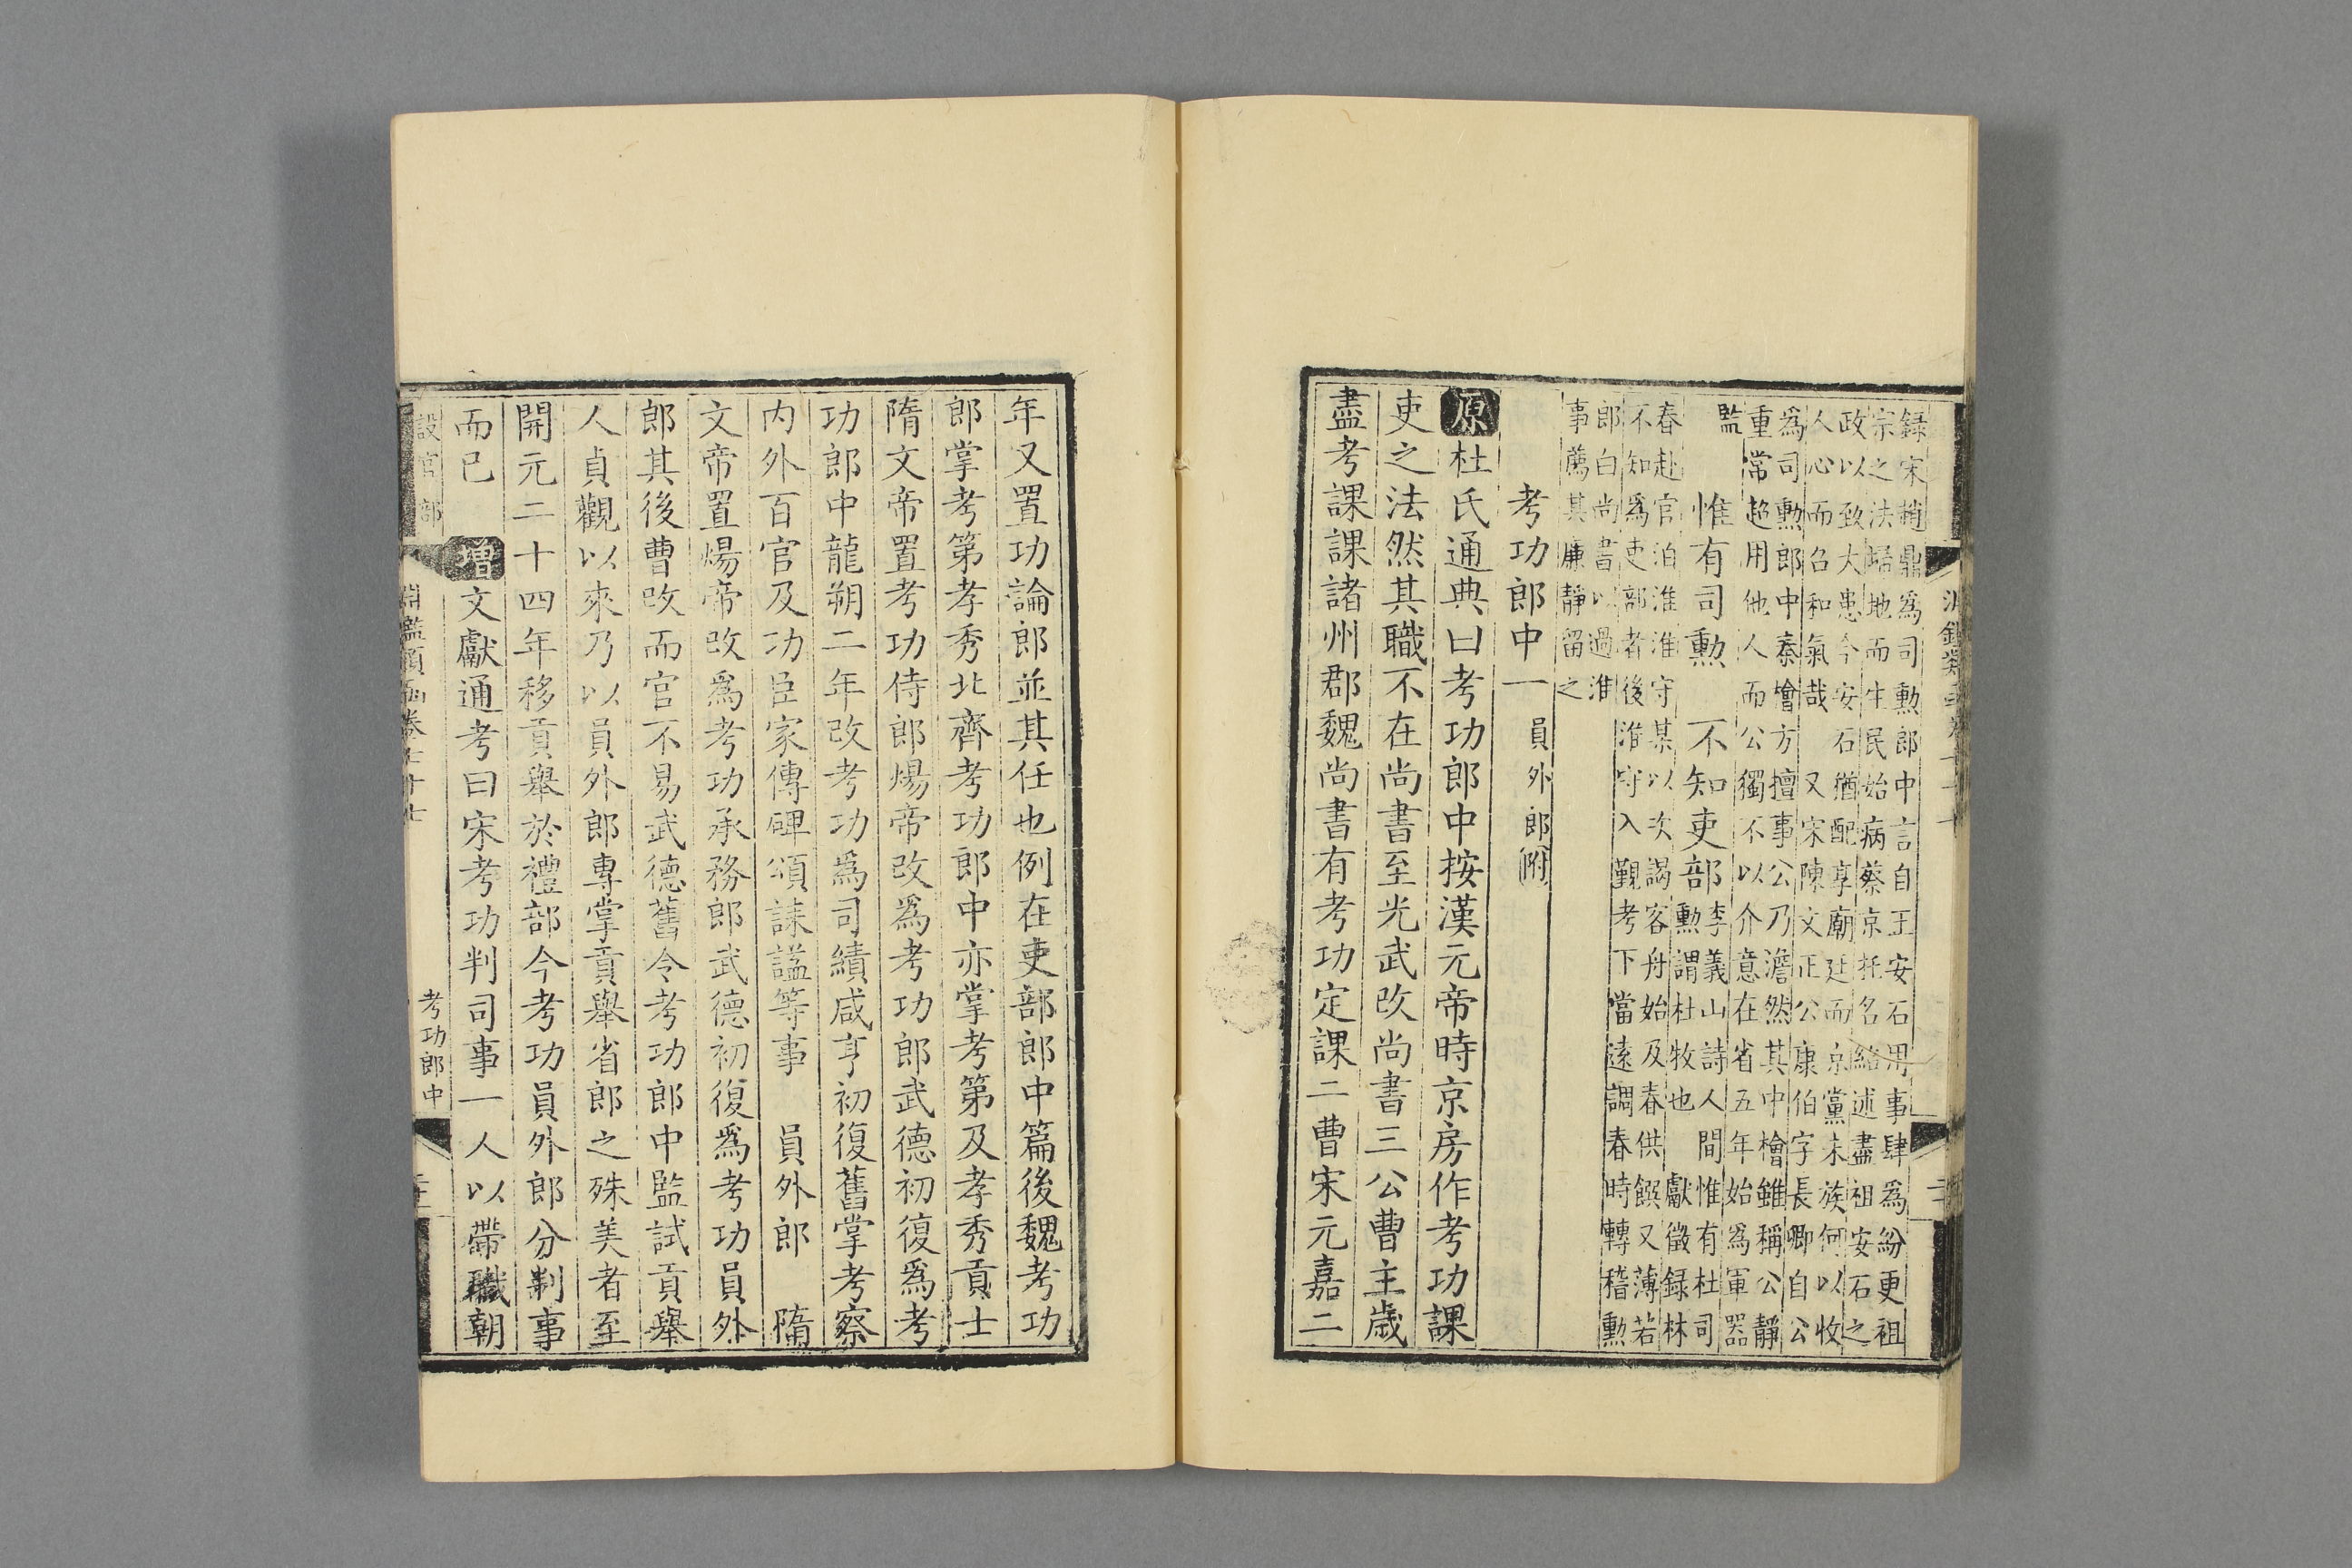 録宋趙鼎為司勲郎中言自王安石用事肆為紛更祖
宗之法掃地而生民始病蔡京托名紹述盡祖安石之
政以致大患今安石猶配享廟廷而京黨未族何以收
人心而召和氣哉　又宋陳文正公康伯字長卿自公
為司勲郎中秦檜方擅事公乃澹然其中檜雖稱公靜
重常超用他人而公獨不以介意在省五年始為軍器
監
惟有司勲　不知吏部　李義山詩人間惟有杜司
勲謂杜牧也　獻徵録林
春赴官泊淮淮守某以次謁客舟始及春供饌又薄若
不知為吏部者後淮守入覲考下當遠調春時轉稽勲
郎白尚書以過淮
事薦其廉靜留之
考功郎中一　員外郎附
原杜氏通典曰考功郎中按漢元帝時京房作考功課
吏之法然其職不在尚書至光武改尚書三公曹主歲
盡考課課諸州郡魏尚書有考功定課二曹宋元嘉二
年又置功論郎並其任也例在吏部郎中篇後魏考功
郎掌考第孝秀北齊考功郎中亦掌考第及孝秀貢士
隋文帝置考功侍郎煬帝改為考功郎武德初復為考
功郎中龍朔二年改考功為司績咸亨初復舊掌考察
内外百官及功臣家傳碑頌誄謚等事　員外郎　隋
文帝置煬帝改為考功承務郎武德初復為考功員外
郎其後曹改而官不易武德舊令考功郎中監試貢舉
人貞觀以來乃以員外郎專掌貢舉省郎之殊美者至
開元二十四年移貢舉於禮部今考功員外郎分判事
而已　增文獻通考曰宋考功判司事一人以帶職朝
設官部
淵鑑類函卷七十七
考功郎中